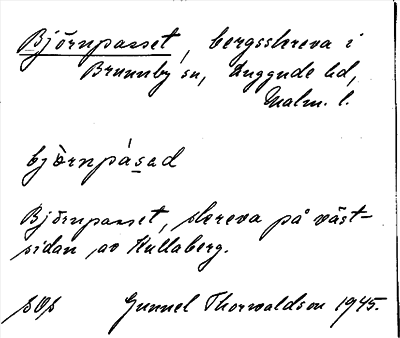 Björnpasset, bergsskreva i
Brunnby sn, Luggude hd,
Malm. l.
bjö̀rnpásad
Björnpasset, skreva på väst-
sidan av Kullaberg.
sOs Gunnel Thorwaldson 1945.